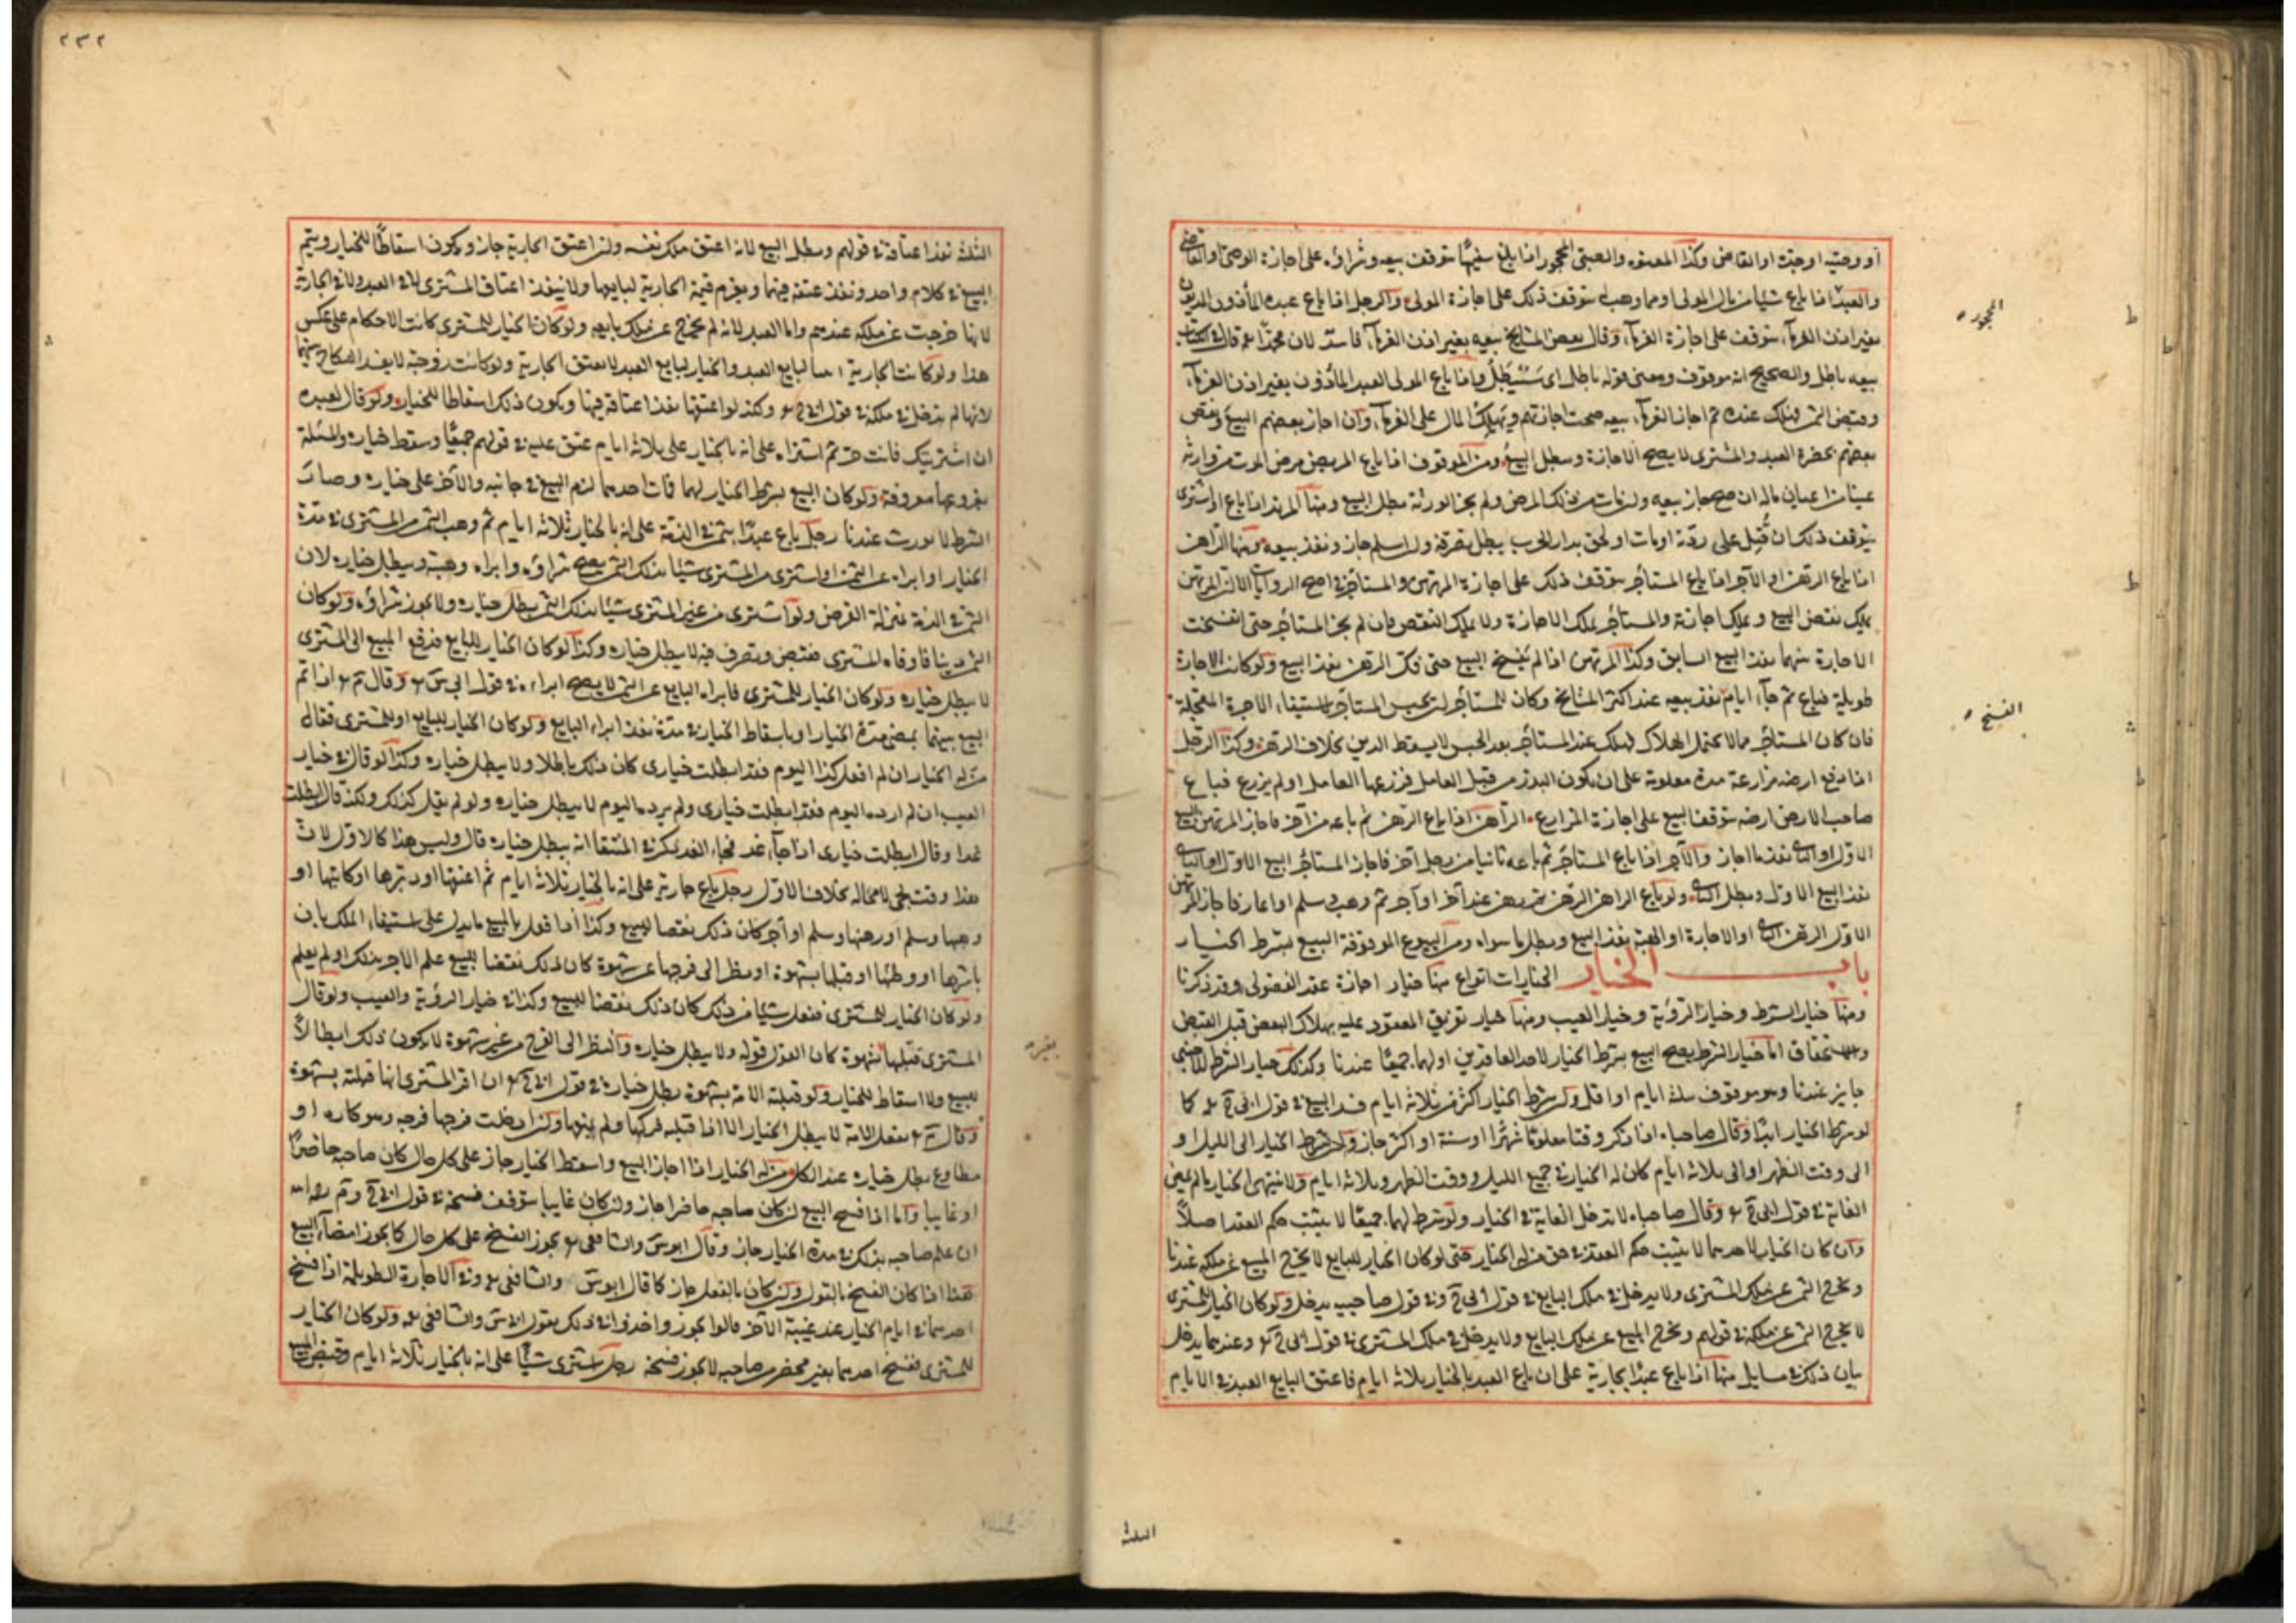 او وصيه او جده او القاضى وكذا المعتوه والصبى المحجور اذا بلغ سفيها يتوقف بيعه وشراؤه على اجازة الوصى او القاضى
والعبد اذا باع شيئا من مال المولى او مما وهب له يتوقف ذلك على اجازة المولى والرجل اذا باع عبده المأذون المديون
بغير اذن الغرماء يتوقف على اجازة الغرماء وقال بعض المشايخ بيعه بغير اذن الغرماء فاسد لان محمدا رہ قال فى الكتاب
بيعه باطل والصحيح انه موقوف ومعنى قوله باطل اى سيبطل واذا باع المولى العبد المأذون بغير اذن الغرماء
وقبض الثمن فهلك عنده ثم اجاز الغرماء بيعه صحت اجازتهم ويهلك المال على الغرماء وان اجاز بعضهم البيع ونقض
بعضهم بحضرة العبد والمشترى لا يصح الاجازة وبطل البيع ومن الموقوف اذا باع المريض مرض الموت من وارثه
عينا من اعيان ماله ان صح جاز بيعه وان مات من ذلك المرض ولم يجز الورثة بطل البيع ومنها المرتد اذا باع او اشترى
يتوقف ذلك ان قتل على ردته او مات او لحق بدار الحرب بطل تصرفه وان اسلم جاز ونفذ بيعه ومنها الراهن
اذا باع الرهن او الآجر اذا باع المستأجر يتوقف ذلك على اجازة المرتهن والمستأجر فى اصح الروايات الا ان المرتهن
يملك نقض البيع ويملك اجازته والمستأجر يملك الاجازة ولا يملك النقض فان لم يجز المستأجر حتى انفسخت
الاجارة بينهما نفذ البيع السابق وكذا المرتهن اذا لم يفسخ البيع حتى فك الرهن نفذ البيع ولو كانت الاجارة
طويلة فباع ثم جاء ايام نفذ بيعه عند اكثر المشايخ وكان للمستأجر ان يحبس المستأجر لاستيفاء الاجرة المعجلة
فان كان المستأجر مما لا يحتمل الهلاك فهلك عند المستأجر بعد الحبس لا يسقط الدين بخلاف الرهن وكذا الرجل
اذا دفع ارضه مزارعة مدة معلومة على ان يكون البذر من قبل العامل فزرعها العامل او لم يزرع فباع
صاحب الارض ارضه يتوقف البيع على اجازة المزارع الراهن اذا باع الرهن ثم باعه من آخر فاجاز المرتهن البيع
الاول او الثانى نفذ ما اجاز والآجر اذا باع المستأجر ثم باعه ثانيا من رجل آخر فاجاز المستأجر البيع الاول او الثانى
نفذ البيع الاول وبطل الثانى ولو باع الراهن الرهن ثم رهن عند آخر او آجر ثم وهب وسلم او اعار فاجاز المرتهن
الاول الرهن الثانى او الاجارة او الهبة نفذ البيع وبطل ما سواه ومن البيوع الموقوفة البيع بشرط الخيار
باب الخيار الخيارات انواع منها خيار اجازة عقد الفضولى وقد ذكرنا
ومنها خيار الشرط وخيار الرؤية وخيار العيب ومنها خيار تفريق المعقود عليه بهلاك البعض قبل القبض
والاستحقاق اما خيار الشرط يصح البيع بشرط الخيار لاحد العاقدين او لهما جميعا عندنا وكذلك خيار الشرط للاجنبى
جايز عندنا وهو موقوف ثلثة ايام او اقل ولو شرط الخيار اكثر من ثلاثة ايام فسد البيع فى قول ابى ح رہ كما
لو شرط الخيار ابدا وقال صاحباه اذا ذكر وقتا معلوما شهرا او سنة او اكثر جاز ولو شرط الخيار الى الليل او
الى وقت الظهر او الى ثلاثة ايام كان له الخيار فى جميع الليل ووقت الظهر وثلاثة ايام ولا ينتهى الخيار ما لم يمض
الغاية فى قول ابى ح رہ وقال صاحباه لا تدخل الغاية فى الخيار ولو شرط لهما جميعا لا يثبت حكم العقد اصلا
وان كان الخيار لاحدهما لا يثبت حكم العقد فى حق من له الخيار حتى لو كان الخيار للبايع لا يخرج المبيع عن ملكه عندنا
ويخرج الثمن عن ملك المشترى ولا يدخل فى ملك البايع فى قول ابى ح وفى قول صاحبيه يدخل ولو كان الخيار للمشترى
لا يخرج الثمن عن ملكه فى قولهم ويخرج المبيع عن ملك البايع ولا يدخل فى ملك المشترى فى قول ابى ح رہ وعندهما يدخل
بيان ذلك فى مسايل منها اذا باع عبدا بجارية على ان باع العبد بالخيار ثلاثة ايام فاعتق البايع العبد فى الايام
المحجور
الفسخ
الثلثة
٢٣٢
الثلثة نفذ اعتاقه فى قولهم وبطل البيع لانه اعتق ملك نفسه وان اعتق الجارية جاز ويكون اسقاطا للخيار ويتم
البيع فى كلام واحد ونفذ عتقه فيهما ويغرم قيمة الجارية لبايعها ولا ينفذ اعتاق المشترى لا فى العبد ولا فى الجارية
لانها خرجت عن ملكه عندهم واما العبد لانه لم يخرج عن ملك بايعه ولو كان الخيار للمشترى كانت الاحكام على عكس
هذا ولو كانت الجارية لبايع العبد والخيار لبايع العبد لا يعتق الجارية ولو كانت زوجته لا يفسد النكاح بينهما
لانها لم تدخل فى ملكه فى قول ابى ح رہ وكذا لو اعتقها نفذ اعتاقه فيها ويكون ذلك اسقاطا للخيار ولو قال لعبده
ان اشتريتك فانت حر ثم اشتراه على انه بالخيار على ثلاثة ايام عتق عليه فى قولهم جميعا وسقط خياره والمسئلة
بفروعها معروفة ولو كان البيع بشرط الخيار لهما فمات احدهما لزم البيع فى جانبه والآخر على خياره وصار
الشرط لا يورث عندنا رجل باع عبدا بثمن فى الذمة على انه بالخيار ثلاثة ايام ثم وهب الثمن من المشترى فى مدة
الخيار او ابراه عن الثمن او اشترى من المشترى شيئا بذلك الثمن يصح شراؤه وابراه وهبته ويبطل خياره لان
الثمن فى الذمة بمنزلة القرض ولو اشترى من غير المشترى شيئا بذلك الثمن يبطل خياره ولا يجوز شراؤه ولو كان
الثمن دينا فاوفاه المشترى فقبض وتصرف فيه لا يبطل خياره وكذا لو كان الخيار للبايع فدفع المبيع الى المشترى
لا يبطل خياره ولو كان الخيار للمشترى فابراه البايع عن الثمن لا يصح ابراءه فى قول ابى س رہ وقال م رہ اذا تم
البيع بينهما بمضى مدة الخيار او باسقاط الخيار فى مدة نفذ ابراء البايع ولو كان الخيار للبايع او للمشترى فقال
من له الخيار ان لم افعل كذا اليوم فقد ابطلت خيارى كان ذلك باطلا ولا يبطل خياره وكذا لو قال فى خيار
العيب ان لم ارده اليوم فقد ابطلت خيارى ولم يرده اليوم لا يبطل خياره ولو لم يقل كذلك ولكنه قال ابطلت
غدا او قال ابطلت خيارى اذا جاء غد فجاء الغد ذكر فى المنتقا انه يبطل خياره قال وليس هذا كالاول لان
هذا وقت يجى لا محالة بخلاف الاول رجل باع جارية على انه بالخيار ثلاثة ايام ثم اعتقها او دبرها او كاتبها او
وهبها وسلم او رهنها وسلم او آجر كان ذلك نقضا للبيع وكذا اذا فعل بالمبيع ما يدل على استيفاء الملك بان
باشرها او وطئها او قبلها بشهوة او نظر الى فرجها عن شهوة كان ذلك نقضا للبيع علم الآجر بذلك او لم يعلم
ولو كان الخيار للمشترى ففعل شيئا من ذلك كان ذلك نقضا للبيع وكذا فى خيار الرؤية والعيب ولو قال
المشترى قبلتها بشهوة كان القول قوله ولا يبطل خياره والنظر الى الفرج من غير شهوة لا يكون ذلك ابطالا
للبيع ولا اسقاط للخيار ولو قبلته الامة بشهوة بطل خياره فى قول ابى ح رہ ان اقر المشترى انها قبلته بشهوة
وقال م رہ بفعل الامة لا يبطل الخيار الا اذا قبلته فتركها ولم ينهها وان ادخلت فرجها فرجه وهو كاره او
مطاوع بطل خياره عند الكل من له الخيار اذا اجاز البيع واسقط الخيار جاز على كل حال كان صاحبه حاضرا
او غايبا واما اذا فسخ البيع ان كان صاحبه حاضرا جاز وان كان غايبا يتوقف فسخه فى قول ابى ح وم رحمہ اللہ
ان علم صاحبه بذلك فى مدة الخيار جاز وقال ابو س والشافعى رہ يجوز الفسخ على كل حال كما يجوز امضاء البيع
هذا اذا كان الفسخ بالقول وان كان بالفعل جاز كما قال ابو س والشافعى رہ وفى الاجارة الطويلة اذا فسخ
احدهما فى ايام الخيار عند غيبة الآخر قالوا يجوز واخذوا فى ذلك بقول ابى س والشافعى رہ ولو كان الخيار
للمشترى ففسخ احدهما بغير محضر من صاحبه لا يجوز فسخه رجل اشترى شيئا على انه بالخيار ثلاثة ايام وقبض المبيع
بغيره